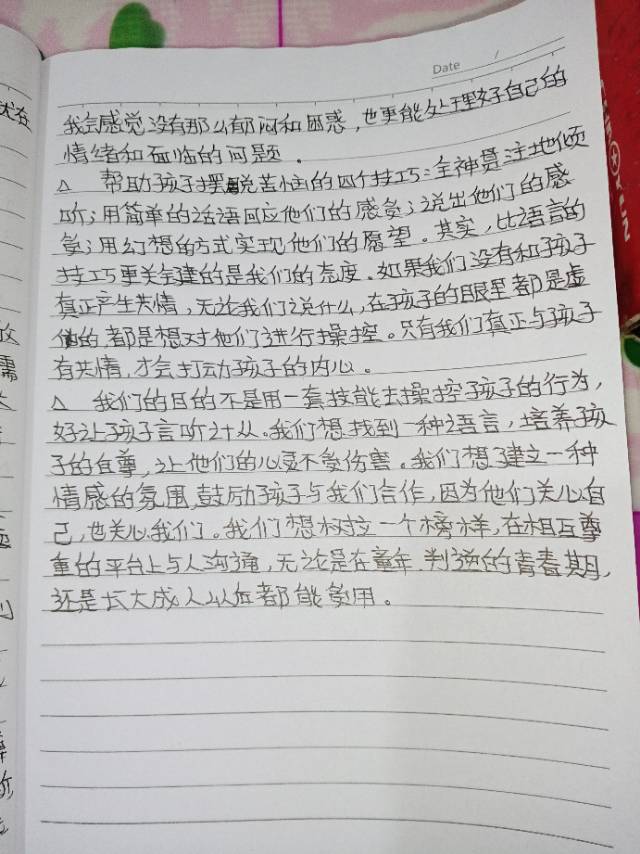 Date /
我会感觉没有那么郁闷和困惑,也更能处理好自己的
情绪和面临的问题。
△ 帮助孩子摆脱苦恼的四个技巧:全神贯注地倾
听;用简单的话语回应他们的感受;说出他们的感
受;用幻想的方式实现他们的愿望。其实,比语言的
技巧更关键的是我们的态度。如果我们没有和孩子
真正产生共情,无论我们说什么,在孩子的眼里都是虚
伪的都是想对他们进行操控。只有我们真正与孩子
有共情,才会打动孩子的内心。
△ 我们的目的不是用一套技能去操控孩子的行为,
好让孩子言听计从。我们想找到一种语言,培养孩
子的自尊,让他们的心灵不受伤害。我们想建立一种
情感的氛围,鼓励孩子与我们合作,因为他们关心自
己,也关心我们。我们想树立一个榜样,在相互尊
重的平台上与人沟通,无论是在童年、叛逆的青春期,
还是长大成人以后都能受用。